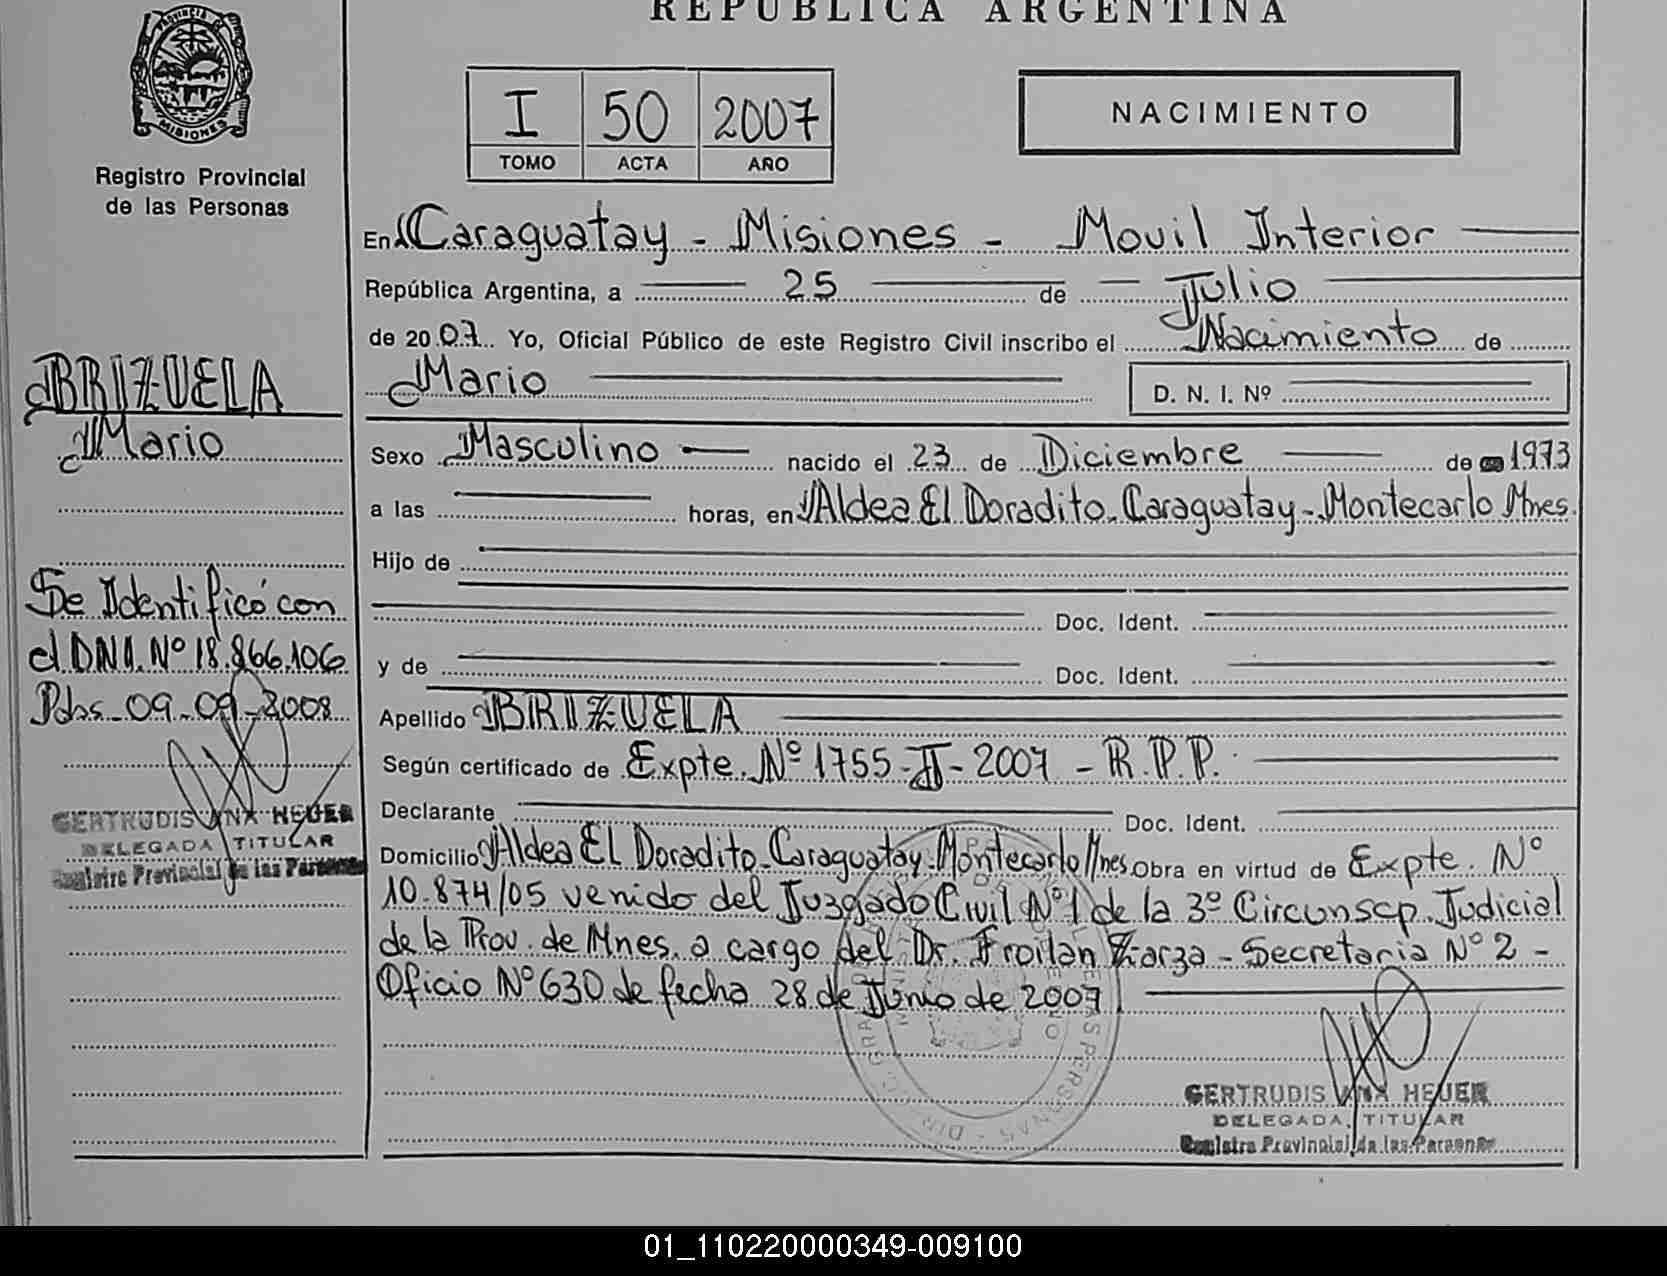 REPUBLICA ARGENTINA
PROVINCIA DE
MISIONES
Registro Provincial
de las Personas
I 50 2007
TOMO ACTA AÑO
NACIMIENTO
En Caraguatay - Misiones - Movil Interior
República Argentina, a 25 de Julio
de 2007 Yo, Oficial Público de este Registro Civil inscribo el Nacimiento de
Mario D. N. I. Nº
Sexo Masculino nacido el 23 de Diciembre de 1973
a las horas, en Aldea El Doradito. Caraguatay - Montecarlo Mnes.
Hijo de
Doc. Ident.
y de Doc. Ident.
Apellido BRIZUELA
Según certificado de Expte. Nº 1755-II-2007 - R.P.P.
Declarante Doc. Ident.
Domicilio Aldea El Doradito - Caraguatay - Montecarlo Mnes. Obra en virtud de Expte. Nº
10.874/05 venido del Juzgado Civil Nº1 de la 3º Circunscp. Judicial
de la Prov. de Mnes. a cargo del Dr. Froilan Zarza - Secretaria Nº 2 -
Oficio Nº 630 de fecha 28 de Junio de 2007
GERTRUDIS ANA HEUER
DELEGADA TITULAR
Registro Provincial de las Personas
BRIZUELA
Mario
Se Identificó con
el D.N.I. Nº 18.866.106
Pdas. 09-09-2008
GERTRUDIS ANA HEUER
DELEGADA TITULAR
Registro Provincial de las Personas
01_110220000349-009100